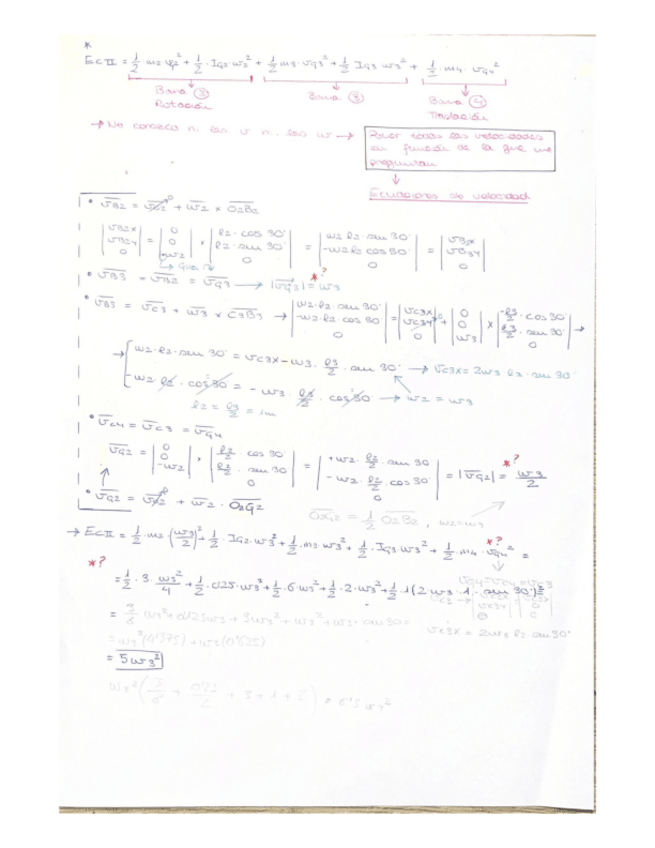 *
EcII = 1/2 · m2 · vG2² + 1/2 · IG2 · w2² + 1/2 m3 · vG3² + 1/2 IG3 w3² + 1/2 · m4 · vG4²
Barra ② Barra ③ Barra ④
Rotación Traslación
→ No conozco ni las v ni las w → Poner todas las velocidades
en función de la que me
preguntan
↓
Ecuaciones de velocidad
• vB2 = vO2 + w2 × O2B2
|vB2x vB2y 0| = |0 0 -w2| × |l2 · cos 30° l2 · sen 30° 0| = |w2 l2 · sen 30° -w2 l2 cos 30° 0| = |vB3x vB3y 0|
• vB3 = vB2 = vG3 → |vG3| = w3 *?
• vB3 = vC3 + w3 × C3B3 → |w2 · l2 · sen 30° -w2 · l2 · cos 30° 0| = |vC3x vC3y 0| + |0 0 w3| × |-l3/2 · cos 30° l3/2 · sen 30° 0| →
→ { w2 · l2 · sen 30° = vC3x - w3 · l3/2 · sen 30° → vC3x = 2w3 · l2 · sen 30°
-w2 · l2 · cos 30° = - w3 · l3/2 · cos 30 → w2 = w3
l2 = l3/2 = 1m
• vC4 = vC3 = vG4
vG2 = |0 0 -w2| × |l2/2 · cos 30 l2/2 · sen 30 0| = |+w2 · l2/2 · sen 30 -w2 · l2/2 · cos 30° 0| = |vG2| = w3/2 *?
• vG2 = vO2 + w2 · O2G2
O2G2 = 1/2 O2B2 , w2=w3
→ EcII = 1/2 · m2 · (w3/2)² + 1/2 · IG2 · w3² + 1/2 · m3 · w3² + 1/2 · IG3 · w3² + 1/2 · m4 · vG4² = *?
*?
= 1/2 · 3 · w3²/4 + 1/2 · 0'25 · w3² + 1/2 · 6 · w3² + 1/2 · 2 · w3² + 1/2 · 1 (2 · w3 · 1 · sen 30°)² =
vG4 = vC4 = vC3
= 3/8 w3² + 0'125 w3 + 3w3² + w3² + w3 · sen 30 =
vC3x = 2w3 l2 · sen 30°
= w3² (0'375) + w3 (0'625)
= 5w3²